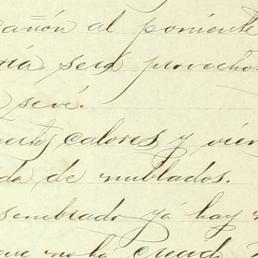 añón al poniente
ía será provechos
sevé.
calores y vien
da de nublados.
sembrado ya hay
que no ha